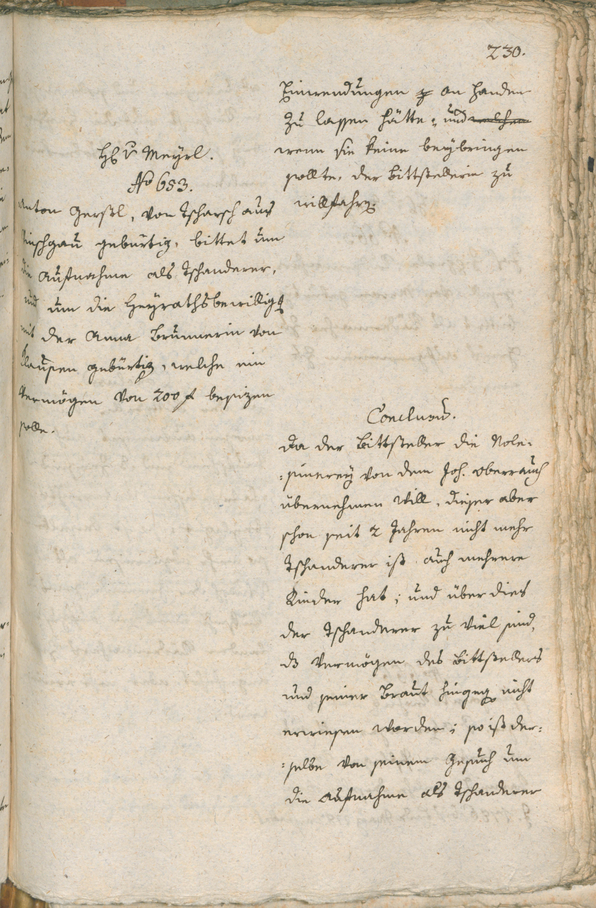 230.
Einwendungen ꝛc an Handen
zu lassen hätte; und welchen
wenn sie keine beybringen
sollte, der Bittstellerin zu
willfahren.
H. v. Meyrl.
No 653.
Anton Gerstl, von Tscharsch aus
Vinschgau gebürtig, bittet um
die Aufnahme als Tschanderer,
und um die Heyrathsbewilligg
mit der Anna Brunnerin von
Klausen gebürtig, welche ein
Vermögen von 200 f besizen
solle.
Conclusum.
Da der Bittsteller die
von dem Joh. Oberrauch
übernehmen will, dieser aber
schon seit 2 Jahren nicht mehr
Tschanderer ist auch mehrere
Kinder hat; und über dies
der Tschanderer zu viel sind,
ds Vermögen des Bittstellers
und seiner Braut hingegen nicht
erwiesen worden; so ist der-
selbe von seinem Gesuch um
die Aufnahme als Tschanderer